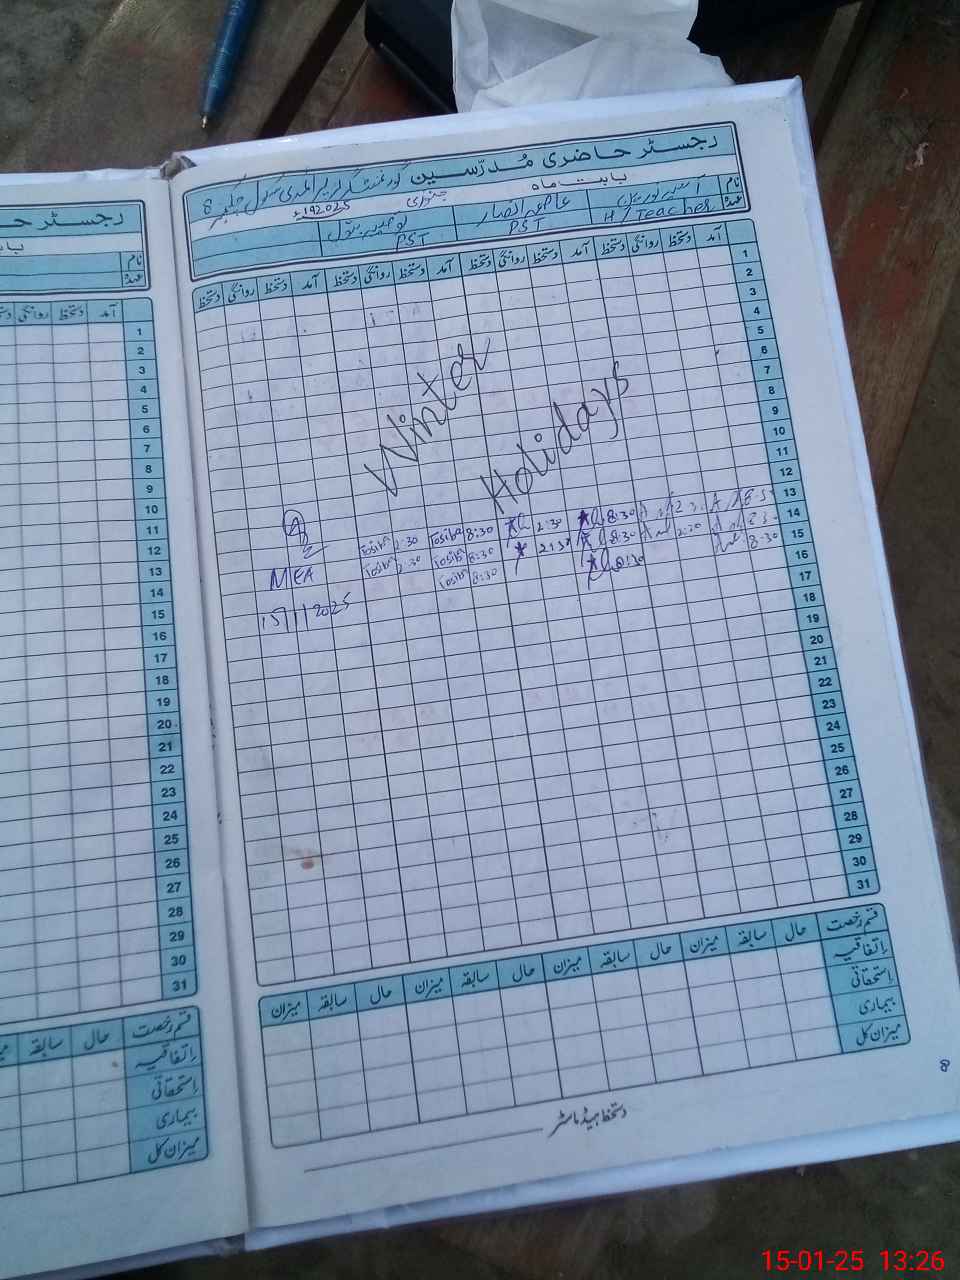 رجسٹر حاضری مُدرّسین گورنمنٹ گرلز پرائمری سکول
بابت ماہ جنوری 2025
نام
عہدہ H/Teacher PST PST
آمد دستخط روانگی دستخط آمد دستخط روانگی دستخط آمد دستخط روانگی دستخط آمد دستخط روانگی دستخط
1
2
3
4
5
6
7
8
9
10
11
12
13
14
15
16
17
18
19
20
21
22
23
24
25
26
27
28
29
30
31
Winter
Holidays
8:30 2:30 8:30 Tosiba 2:30 Tosiba
8:30 2:30 8:30 2:30 8:30 Tosiba 2:30 Tosiba
8:30 8:30 8:30 Tosiba
MEA
15/1/2025
قسم رخصت حال سابقہ میزان حال سابقہ میزان حال سابقہ میزان حال سابقہ میزان
اتفاقیہ
استحقاقی
بیماری
میزان کل
دستخط ہیڈ ماسٹر
8
رجسٹر حا
با
نام
عہدہ
آمد دستخط روانگی
1
2
3
4
5
6
7
8
9
10
11
12
13
14
15
16
17
18
19
20
21
22
23
24
25
26
27
28
29
30
31
قسم رخصت حال سابقہ
اتفاقیہ
استحقاقی
بیماری
میزان کل
15-01-25 13:26